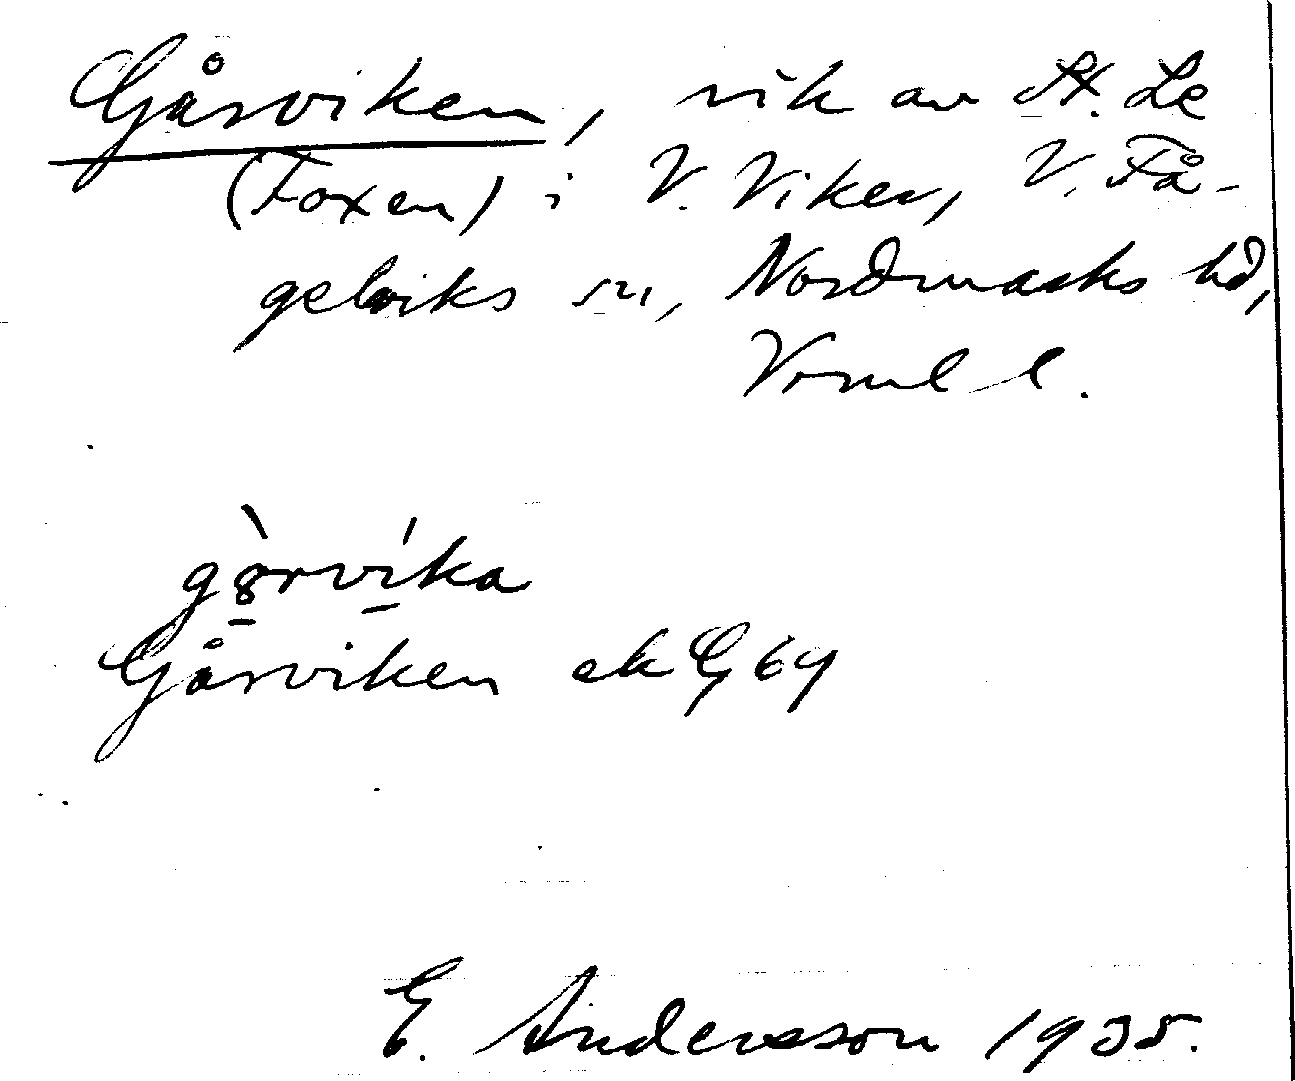 Gåsviken, vik av St. Le
(Foxen) i V. Viker, V. Få-
gelviks sn, Nordmarks hd,
Vrml l.
gȣ̀rvíka
Gåsviken ek G 69
E. Andersson 1935.